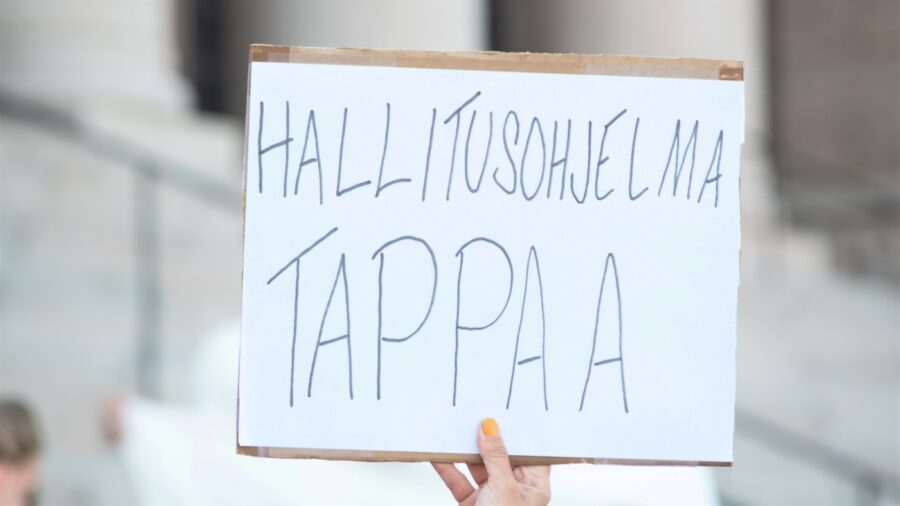 HALLITUSOHJELMA
TAPPAA